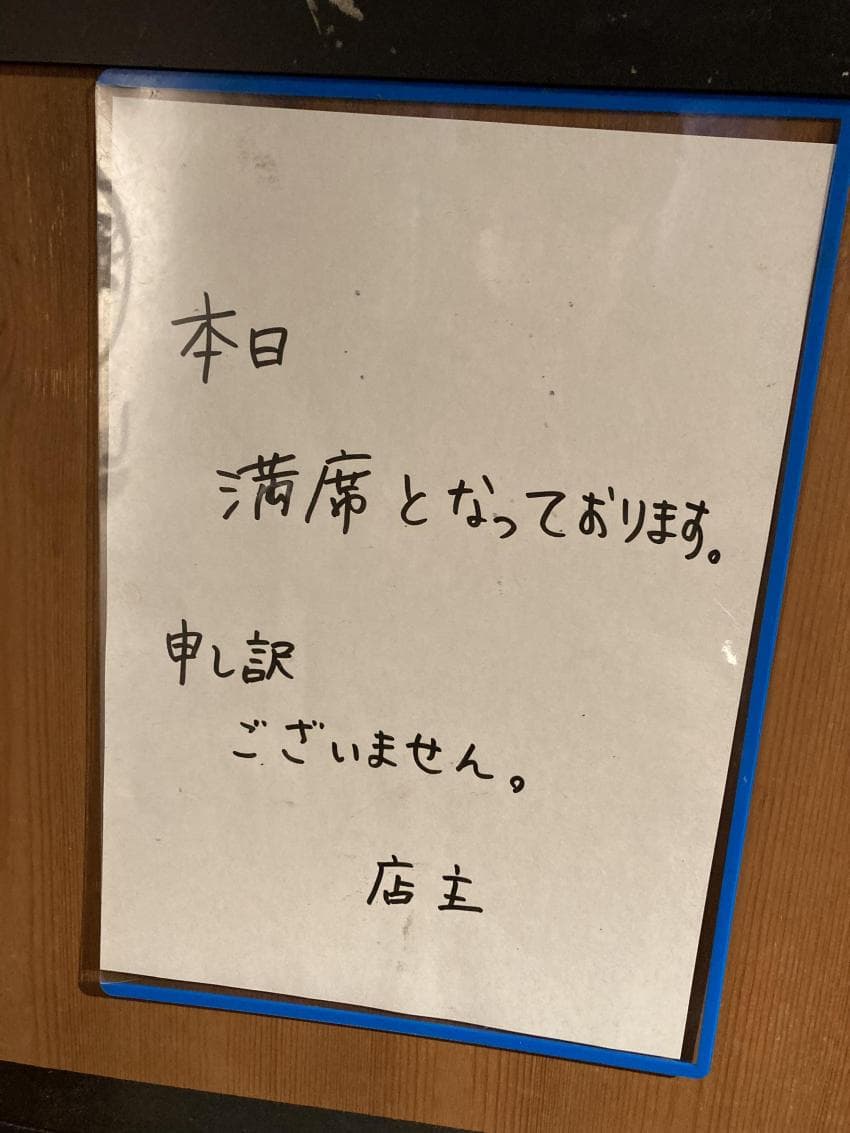 本日
満席となっております。
申し訳
ございません。
店主